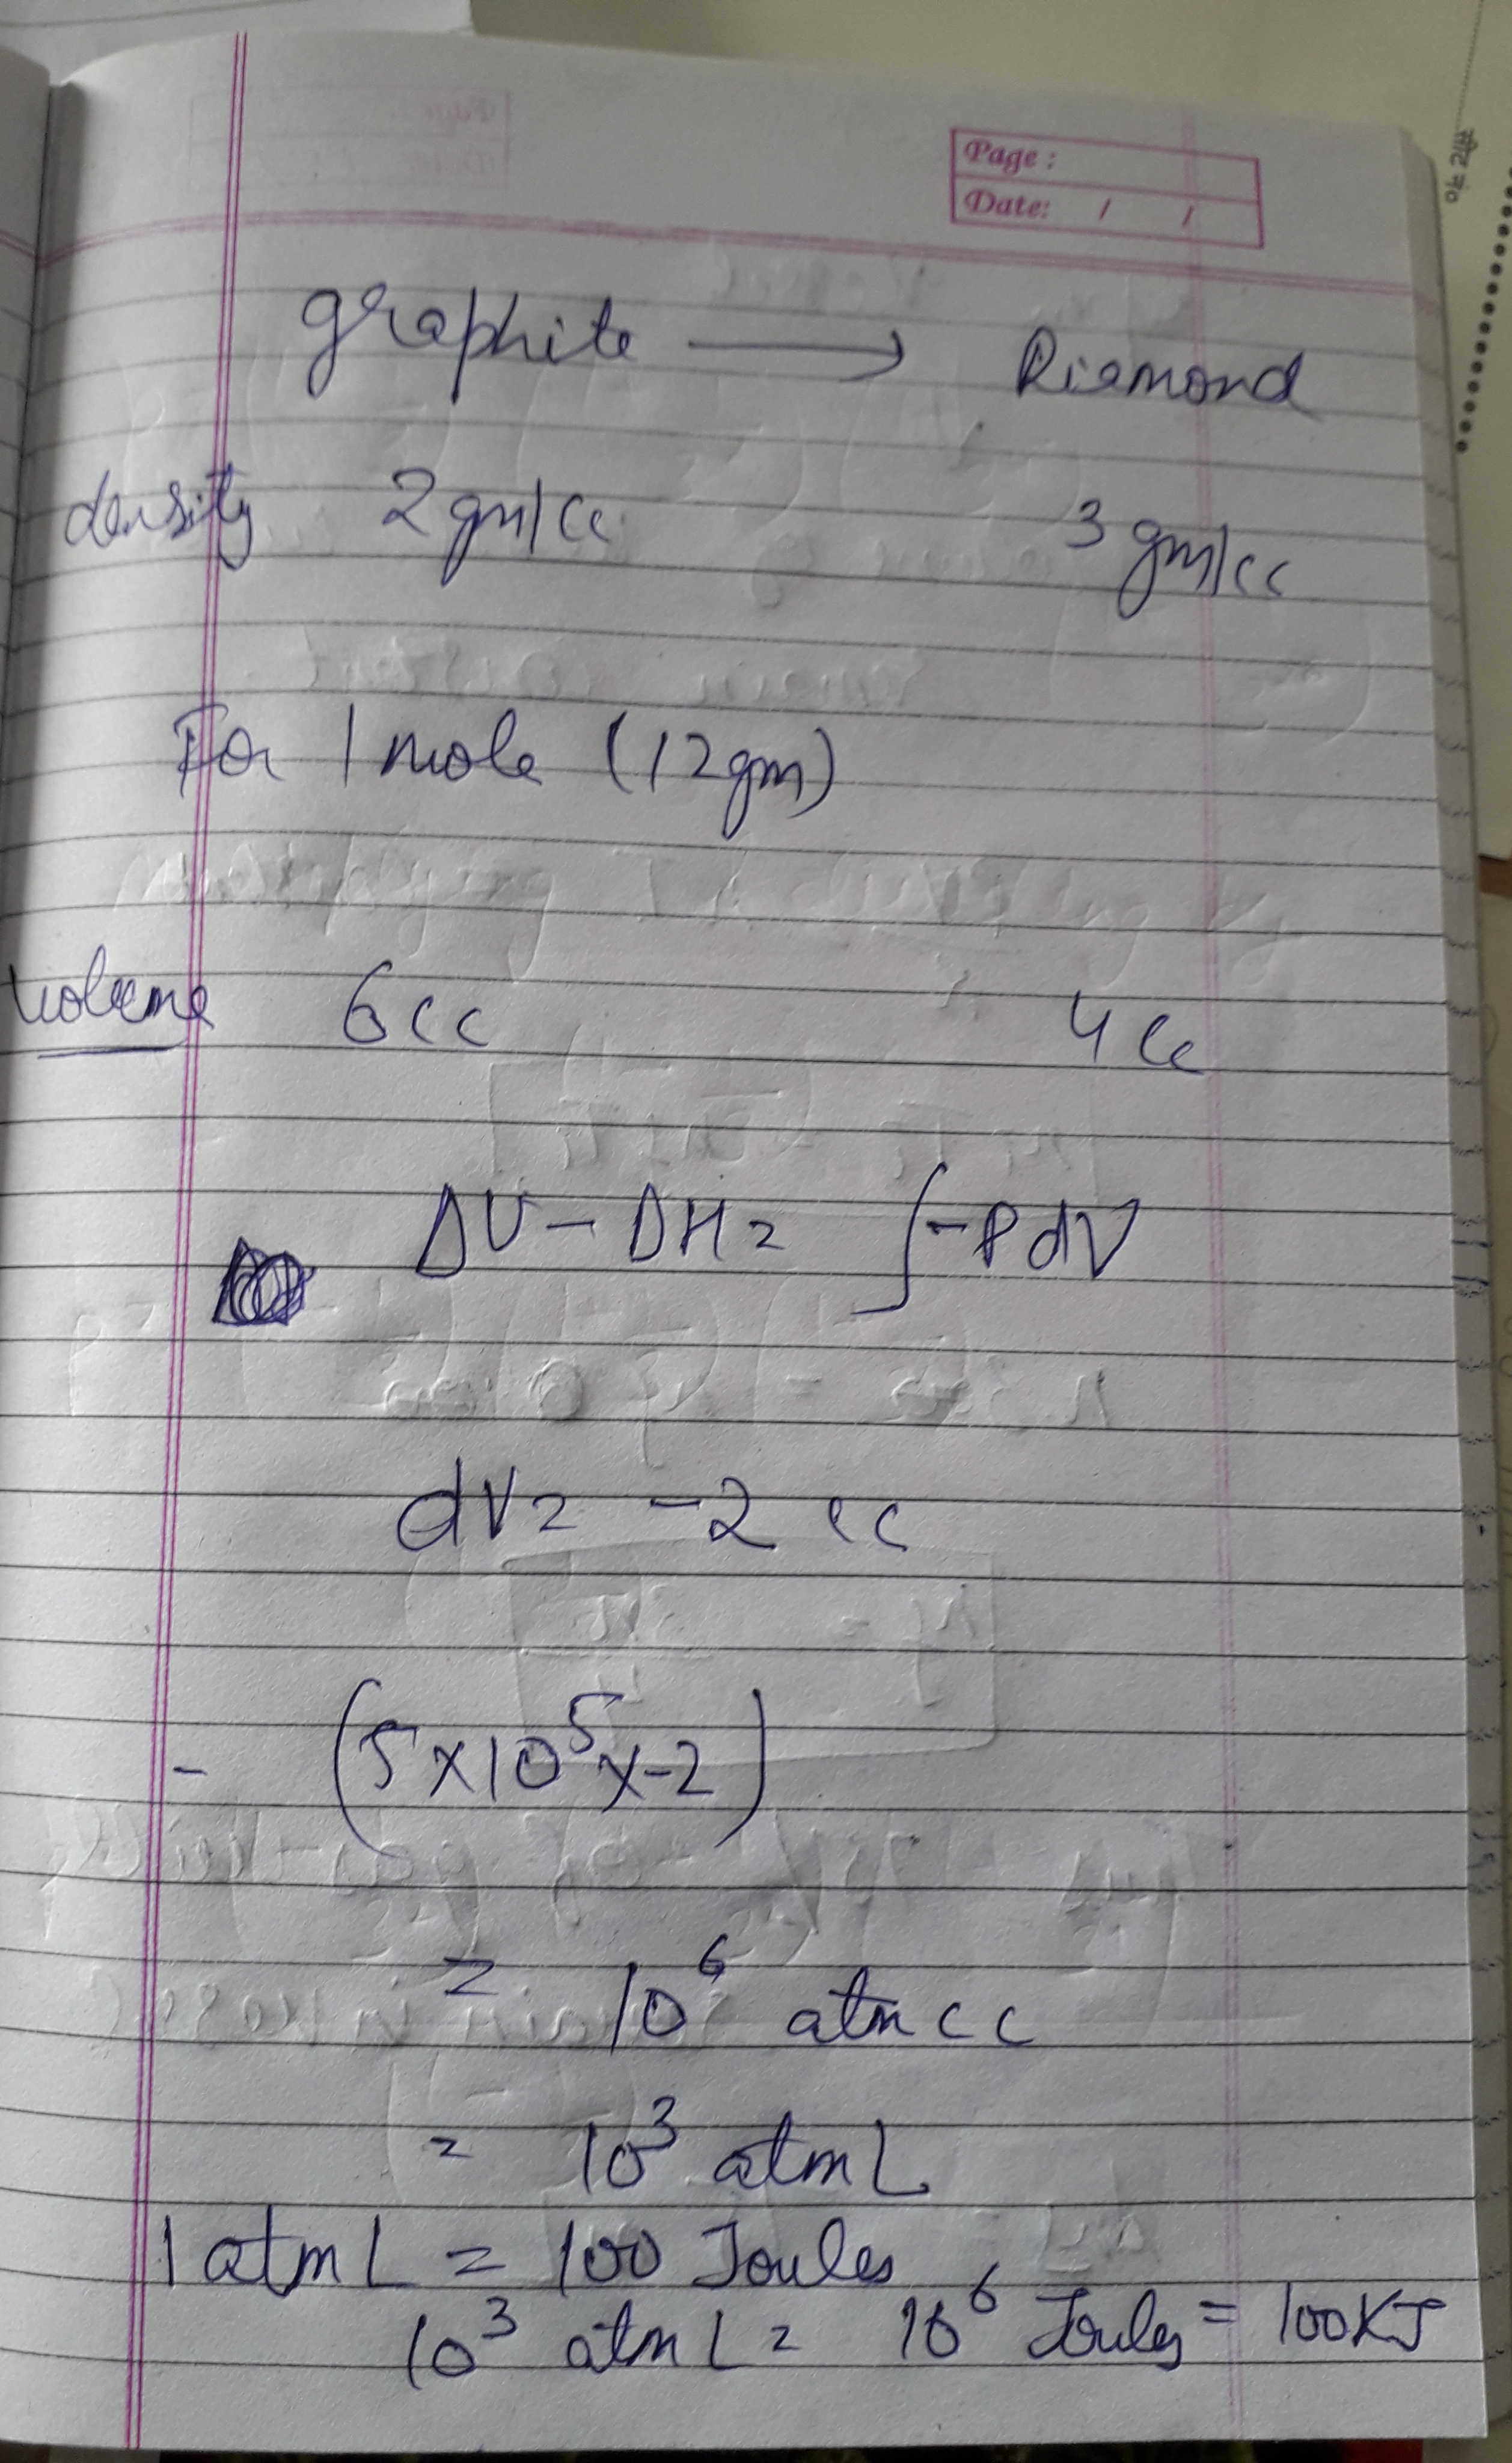 Page :
Date: / /
graphite ⟶ Diamond
density 2 gm/cc 3 gm/cc
For 1 mole (12gm)
Volume 6cc 4 cc
ΔU - ΔH = ∫-PdV
dV = -2 cc
- (5×10⁵×-2)
= 10⁶ atm cc
= 10³ atm L
1 atm L = 100 Joules
10³ atm L = 10⁶ Joules = 100KJ